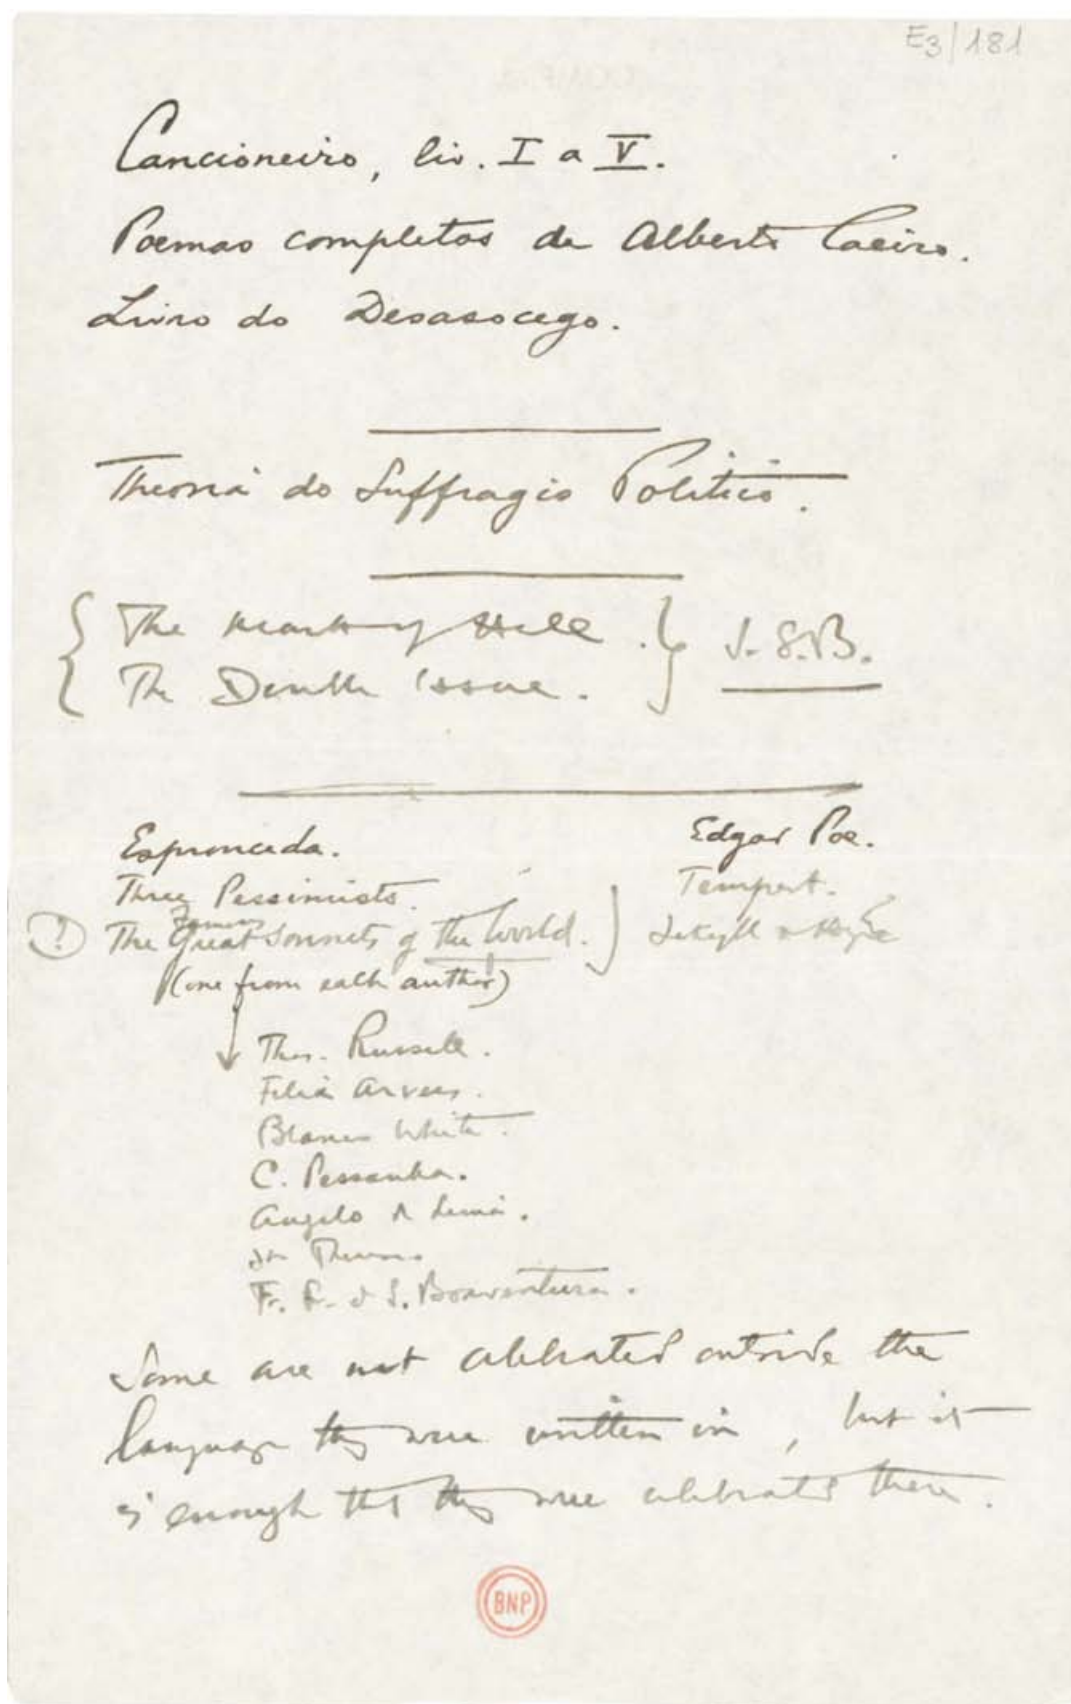 E3/181
Cancioneiro, liv. I a V.
Poemas completos de Alberto Caeiro.
Livro do Desasocego.
Theoria do Suffragio Politico.
{ The Mark of Hell . }
{ The Double Issue . } J. S. B.
Espronceda. Edgar Poe.
Three Pessimists. Tempest.
Famous
(?) The Great Sonnets of the World. } Jekyll & Hyde
(one from each author)
Thos. Russell.
Felix Arvers.
Blanco White.
C. Pessanha.
Angelo de Lima.
F. de S. Boaventura.
Some are not celebrated outside the
language they were written in, but it
is enough that they were celebrated there.
BNP